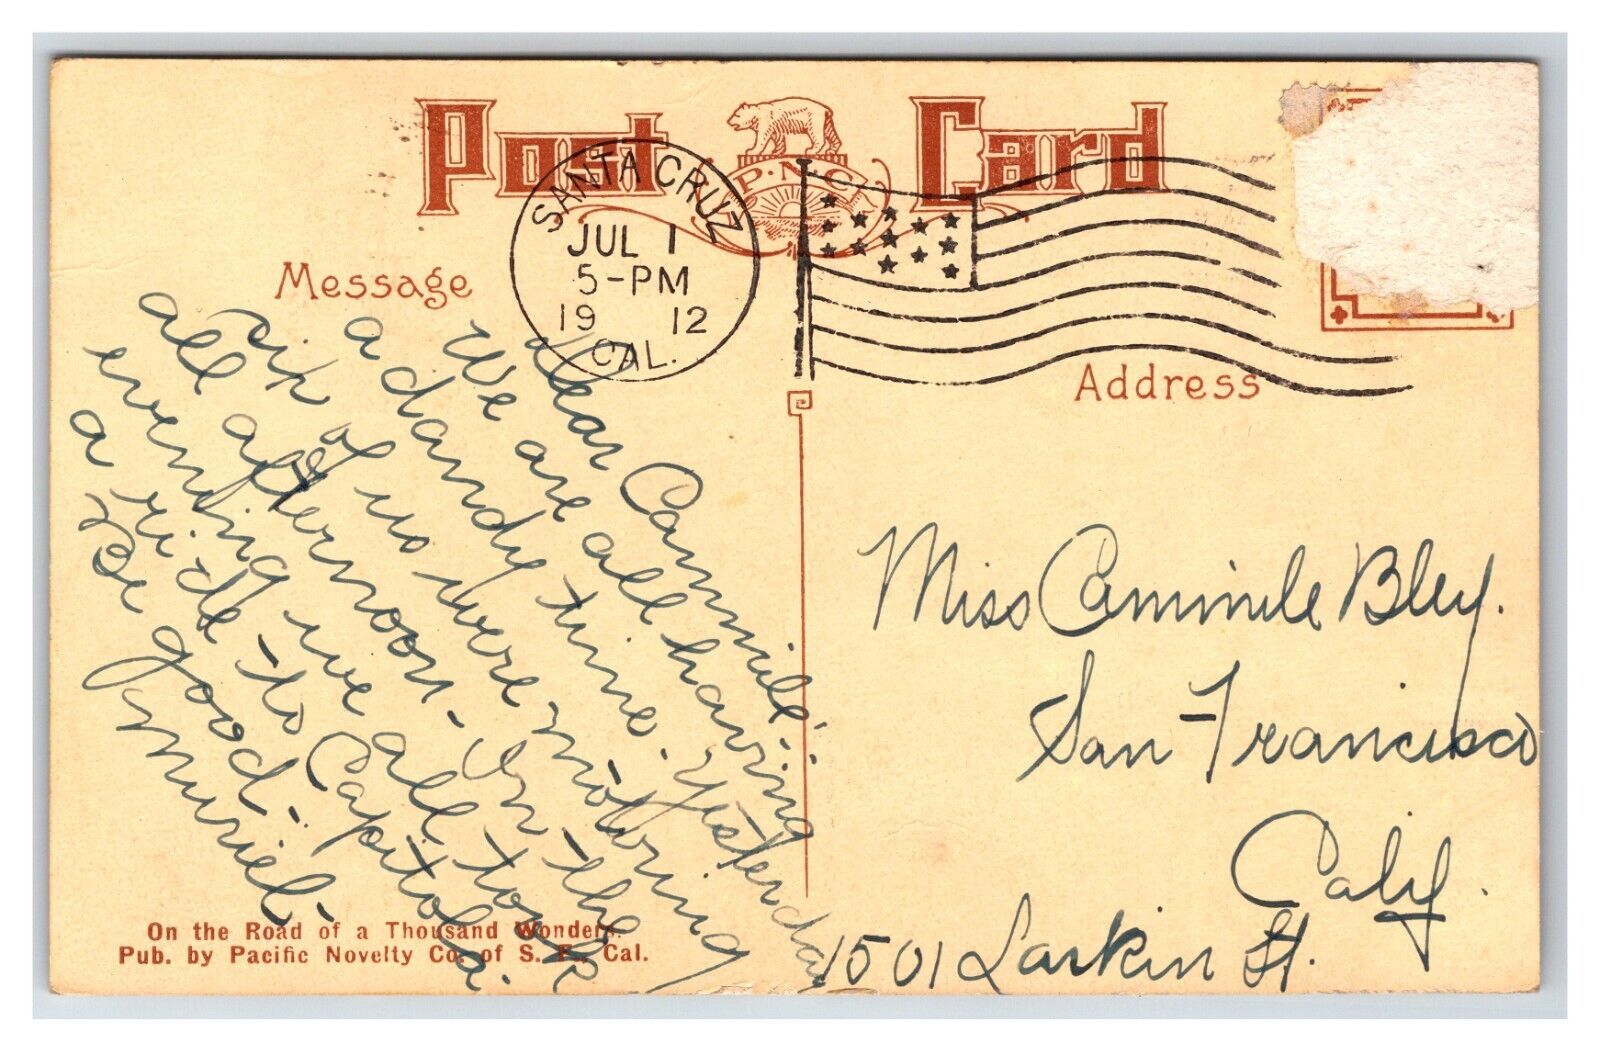 Post Card
P.N.C.
SANTA CRUZ
JUL 1
5-PM
19 12
CAL.
Message
Address
Dear Cammile:
We are all having
a dandy time. Yesterday
six of us were motoring
all afternoon. In the
evening we all took
a ride to Capitola.
Be good -
Muriel -
Miss Cammile Bley.
San Francisco
Calif.
1501 Larkin St.
On the Road of a Thousand Wonders.
Pub. by Pacific Novelty Co. of S. F., Cal.